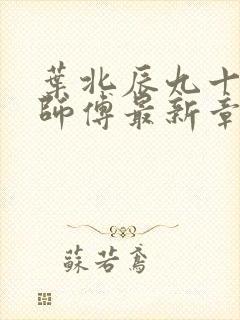 葉北辰九十
師傅最新章
蘇若鳶